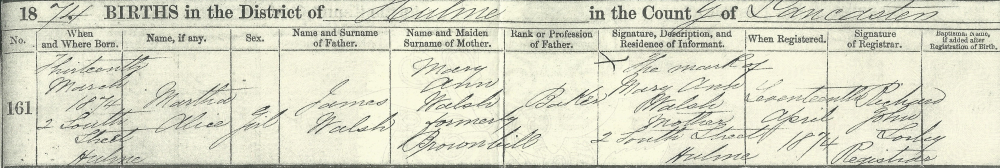 1874 BIRTHS in the District of Hulme in the County of Lancaster
No. When and Where Born. Name, if any. Sex. Name and Surname of Father. Name and Maiden Surname of Mother. Rank or Profession of Father. Signature, Description, and Residence of Informant. When Registered. Signature of Registrar. Baptismal Name, if added after Registration of Birth.
161
Thirteenth
March
1874
2 South
Street
Hulme
Martha
Alice
Girl
James
Walsh
Mary
Ann
Walsh
formerly
Brownbill
X The mark of
Mary Ann
Walsh
Mother
2 South Street
Hulme
Seventeenth
April
1874
Richard
John
Registrar